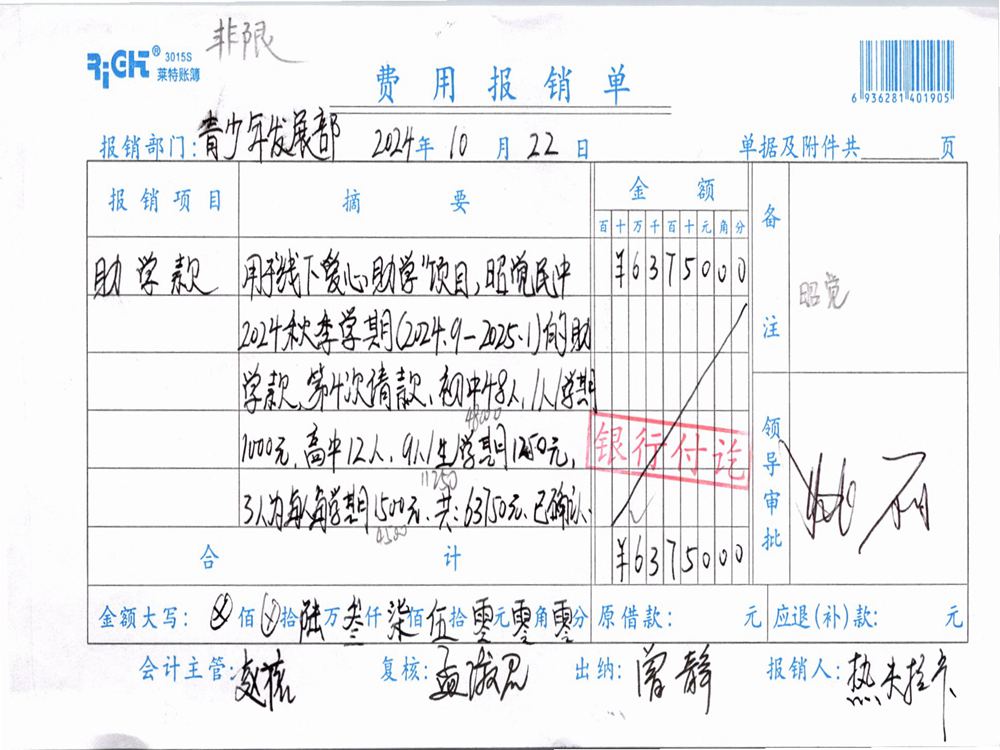 非限
RiGHT® 3015S
莱特账簿
费用报销单
6 936281 401905
报销部门:青少年发展部 2024年10月22日 单据及附件共 页
报销项目 摘要 金额 备注
百十万千百十元角分
助学款 用于线下"爱心助学"项目,昭觉民中 ¥6375000
2024秋季学期(2024.9-2025.1)的助
昭觉
学款、第4次请款、初中48人,1人/学期
48000
1000元,高中12人,9人/生/学期1250元,
银行付讫
11250
3人为每人每学期1500元、共:63750元、已确认.
4500
领导审批
合计 ¥6375000
金额大写: 佰 拾陆万叁仟柒佰伍拾零元零角零分 原借款: 元 应退(补)款: 元
会计主管: 复核: 出纳:曾静 报销人: